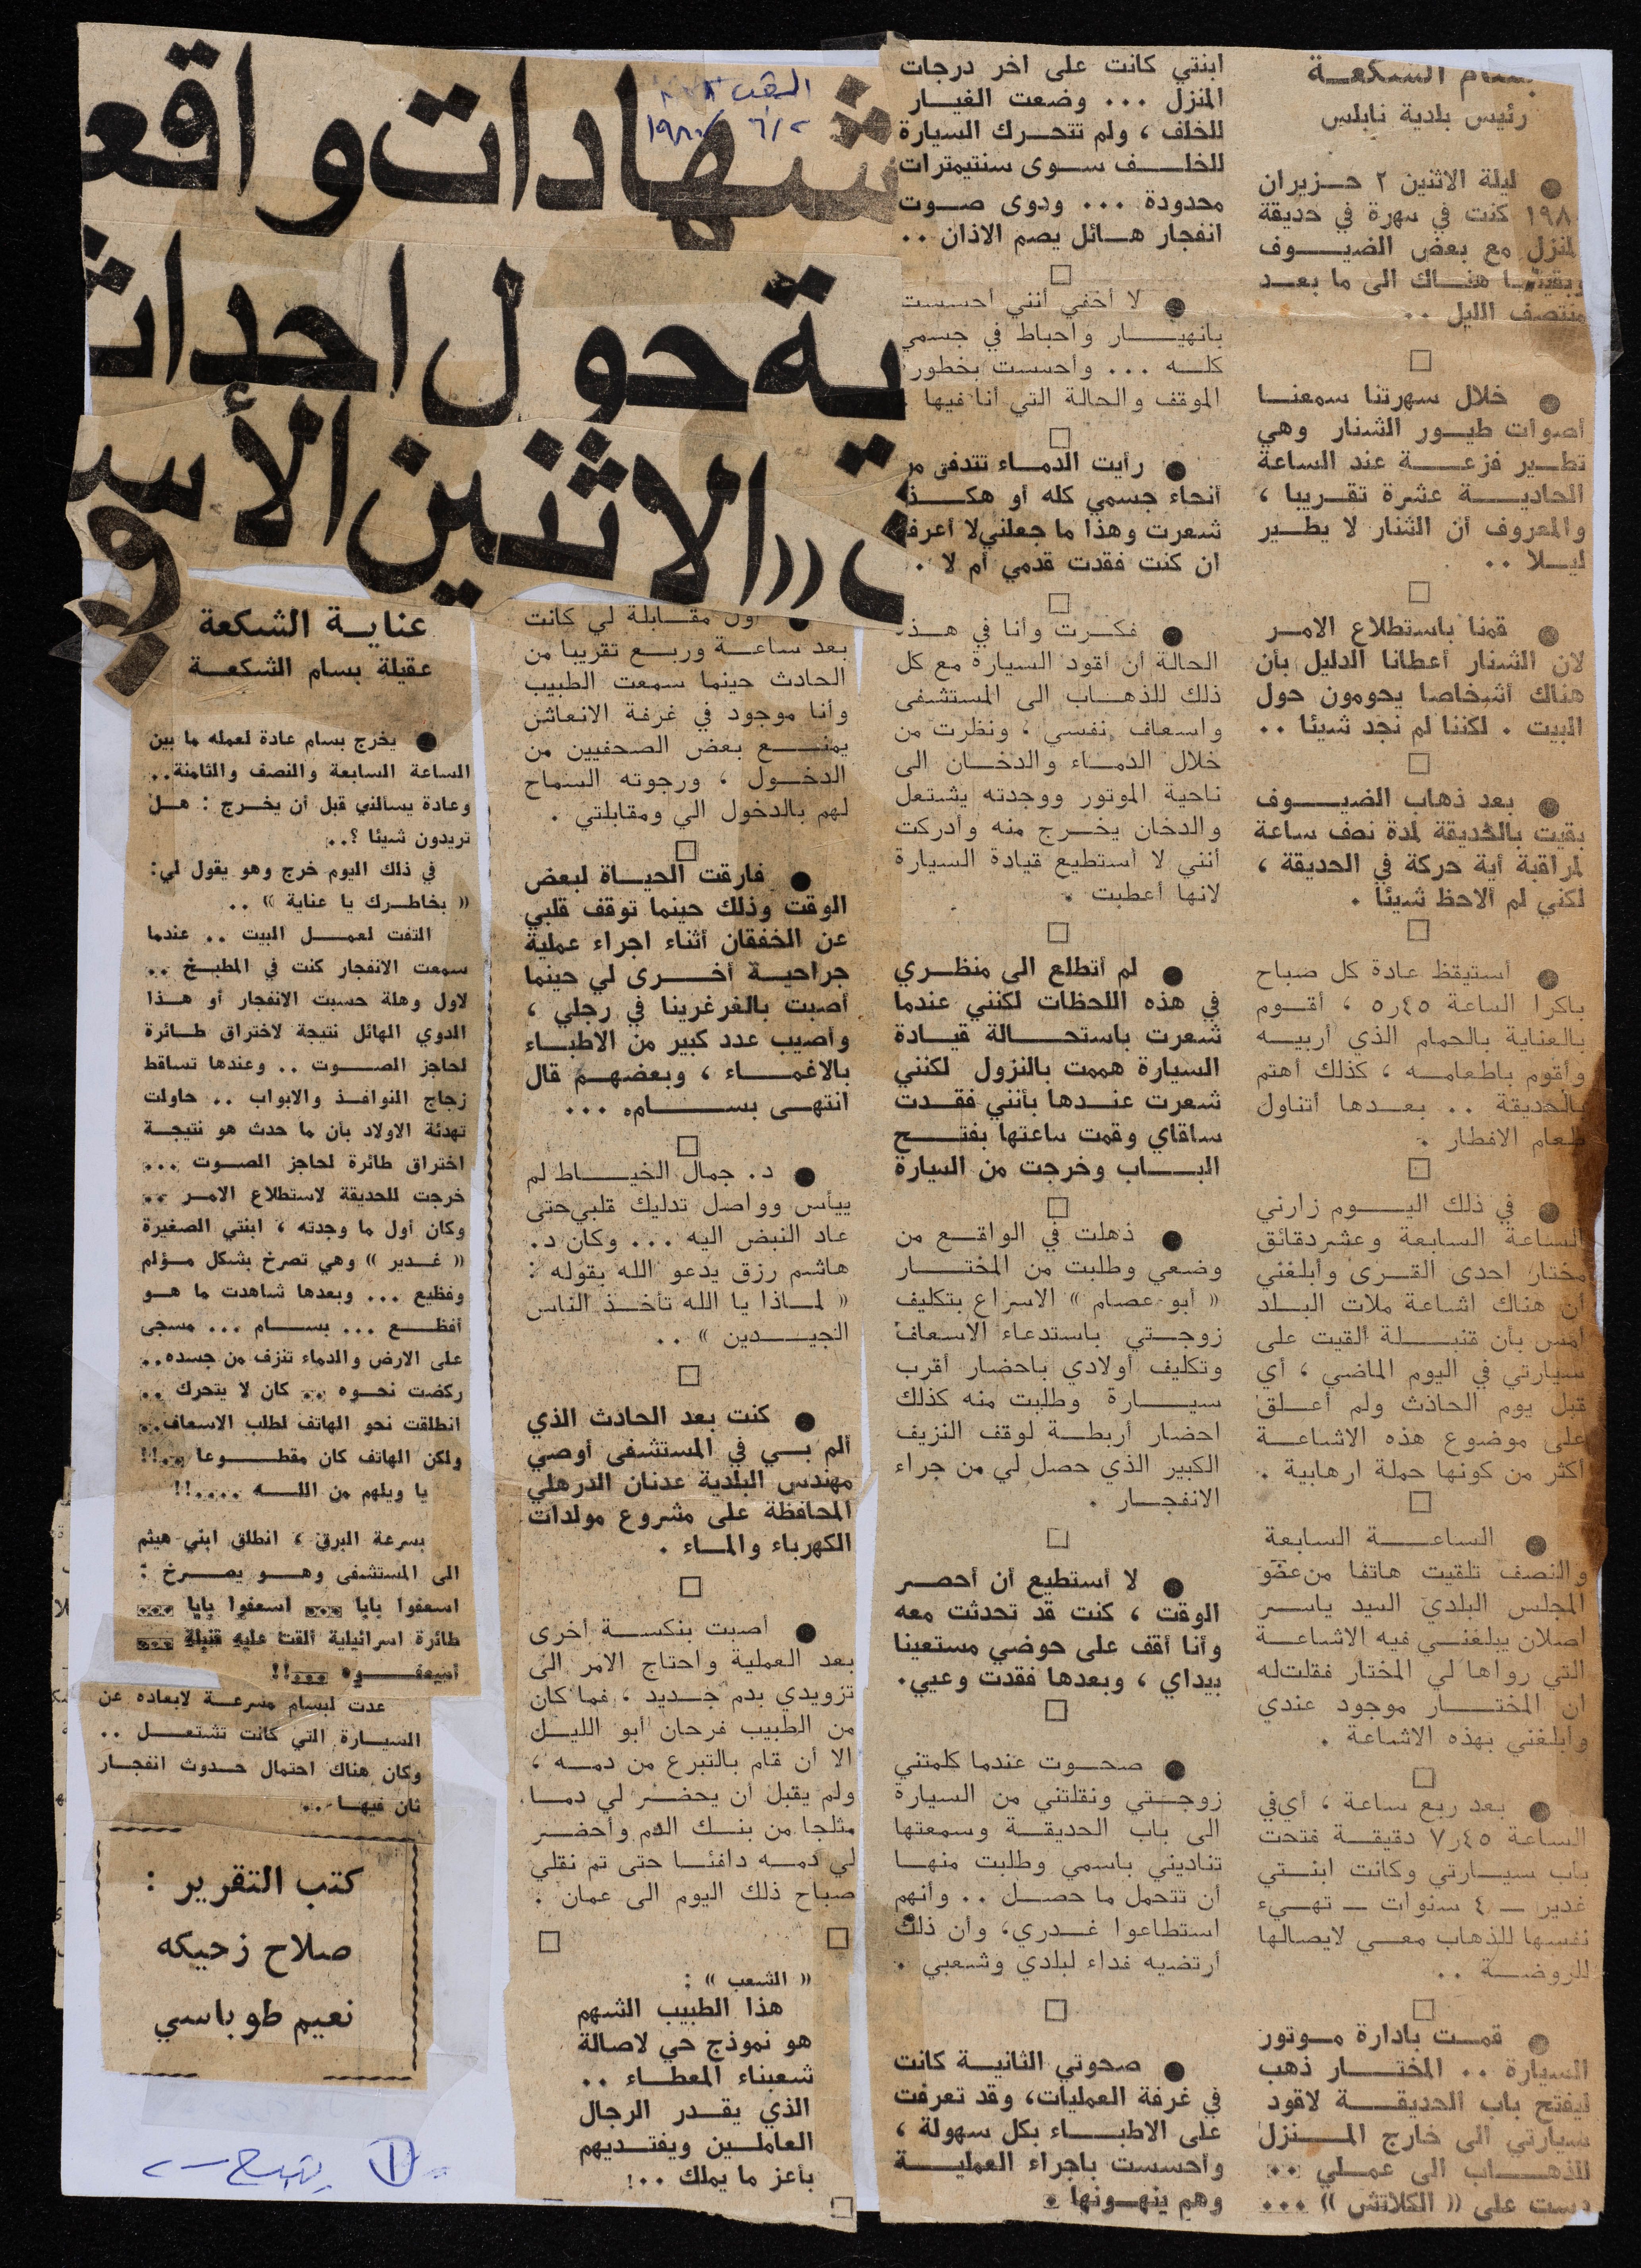 شهادات واقع
ية حول احداث
((الاثنين الأسو
الشعب
٦/٢ /١٩٨
بسام الشكعـــة
رئيس بلدية نابلس
● ليلة الاثنين ٢ حــزيران
١٩٨٠ كنت في سهرة في حديقة
المنزل مع بعض الضيـــوف
وبقينــا هنــاك الى ما بعــد
منتصف الليل ..
□
● خلال سهرتنا سمعنــا
أصوات طيــور الشنار وهي
تطــير فزعـــة عند الساعة
الحاديـــة عشرة تقــريبا ،
والمعروف أن الشنار لا يطــير
ليــلا ..
□
● قمنا باستطلاع الامــر
لان الشنار أعطانا الدليل بأن
هناك أشخاصا يحومون حول
البيت . لكننا لم نجد شيئا ..
□
● بعد ذهاب الضيـــوف
بقيت بالحديقة لمدة نصف ساعة
لمراقبة أية حركة في الحديقة ،
لكني لم ألاحظ شيئا .
□
● أستيقظ عادة كل صباح
باكرا الساعة ٤٥ر٥ ، أقــوم
بالعناية بالحمام الذي أربيــه
وأقوم باطعامــه ، كذلك أهتم
بالحديقة .. بعــدها أتناول
طعام الافطار .
□
● في ذلك اليــوم زارني
الساعة السابعة وعشر دقائق
مختار احدى القــرى وأبلغني
أن هناك اشاعة ملات البــلد
أمس بأن قنبــلة ألقيت على
سيارتي في اليوم الماضي ، أي
قبل يوم الحادث ولم أعــلق
على موضوع هذه الاشاعــة
أكثر من كونها حملة ارهابية .
□
● الساعـــة السابعة
والنصف تلقيت هاتفا من عضو
المجلس البلدي السيد ياســر
اصلان يبلغنــي فيه الاشاعــة
التي رواها لي المختار فقلت له
ان المختــار موجود عندي
وأبلغني بهذه الاشاعة .
□
● بعد ربع ساعة ، أي في
الساعة ٤٥ر٧ دقيقــة فتحت
باب سيــارتي وكانت ابنــتي
غدير ــ ٤ سنوات ــ تهــيء
نفسها للذهاب معــي لايصالها
للروضــة ..
□
● قمــت بادارة مــوتور
السيارة .. المختــار ذهب
ليفتح باب الحديقـــة لاقود
سيارتي الى خارج المــنزل
للذهـــاب الى عمــلي ..
دست على (( الكلاتش )) ...
ابنتي كانت على اخر درجات
المنزل ... وضعت الغيــار
للخلف ، ولم تتحــرك السيارة
للخلــف سوى سنتيمترات
محدودة ... ودوى صــوت
انفجار هــائل يصم الاذان ..
□
● لا أخفي أنني أحسست
بانهيــار واحباط في جسمي
كلــه ... وأحسست بخطور
الموقف والحالة التي أنا فيها .
□
● رأيت الدمــاء تتدفق مر
أنحاء جسمي كله أو هكــذ
شعرت وهذا ما جعلني لا أعرف
ان كنت فقدت قدمي أم لا .
□
● فكــرت وأنا في هــذ
الحالة أن أقود السيارة مع كل
ذلك للذهــاب الى المستشفى
واسعاف نفسي ، ونظرت من
خلال الدمــاء والدخــان الى
ناحية الموتور ووجدته يشتعل
والدخان يخــرج منه وأدركت
أنني لا أستطيع قيادة السيارة
لانها أعطبت .
□
● لم أتطلع الى منظــري
في هذه اللحظات لكنني عندما
شعرت باستحـــالة قيــادة
السيارة هممت بالنزول لكنني
شعرت عنــدها بأنني فقــدت
ساقاي وقمت ساعتها بفتــح
البـــاب وخرجت من السيارة
□
● ذهلت في الواقــع من
وضعي وطلبت من المختــار
(( أبو عصام )) الاسراع بتكليف
زوجــتي باستدعاء الاسعاف
وتكليف أولادي باحضار أقرب
سيــارة وطلبت منه كذلك
احضار أربطــة لوقف النزيف
الكبير الذي حصل لي من جراء
الانفجــار .
□
● لا أستطيع أن أحصــر
الوقت ، كنت قد تحدثت معه
وأنا أقف على حوضي مستعينا
بيداي ، وبعدها فقدت وعيي.
□
● صحــوت عندما كلمتني
زوجــتي ونقلتني من السيارة
الى باب الحديقــة وسمعتها
تناديني باسمي وطلبت منهــا
أن تتحمل ما حصــل .. وأنهم
استطاعوا غــدري، وأن ذلك
أرتضيه فداء لبلدي وشعبي .
□
● صحوتي الثانيــة كانت
في غرفة العمليات، وقد تعرفت
على الاطبــاء بكل سهولة ،
وأحسست باجراء العمليــة
وهم ينهــونها .
● أول مقــابلة لي كانت
بعد ساعــة وربــع تقريبا من
الحادث حينما سمعت الطبيب
وأنا موجود في غرفة الانعاش
يمنـــع بعض الصحفيين من
الدخــول ، ورجوته السماح
لهم بالدخول الي ومقابلتي .
□
● فارقت الحيــاة لبعض
الوقت وذلك حينما توقف قلبي
عن الخفقان أثناء اجراء عملية
جراحيــة أخــرى لي حينما
أصبت بالغرغرينا في رجلي ،
وأصيب عدد كبير من الاطبــاء
بالاغمــاء ، وبعضهــم قال
انتهى بســـام ...
□
● د. جمال الخيــاط لم
ييأس وواصل تدليك قلبي حتى
عاد النبض اليه ... وكان د.
هاشم رزق يدعو الله بقوله :
(( لمــاذا يا الله تأخــذ الناس
الجيــدين )) ..
□
● كنت بعد الحادث الذي
ألم بــي في المستشفى أوصي
مهندس البلدية عدنان الدرهلي
المحافظة على مشروع مولدات
الكهرباء والمــاء .
□
● أصبت بنكســة أخرى
بعد العملية واحتاج الامر الى
تزويدي بدم جــديد ، فما كان
من الطبيب فرحان أبو الليــل
الا أن قام بالتبرع من دمــه ،
ولم يقبل أن يحضــر لي دمــا
مثلجا من بنــك الدم وأحضــر
لي دمــه دافئــا حتى تم نقلي
صباح ذلك اليوم الى عمان .
□ □
(( الشعب )) :
هذا الطبيب الشهم
هو نموذج حي لاصالة
شعبناء المعطــاء ..
الذي يقــدر الرجال
العاملــين ويفتــديهم
بأعز ما يملك ..!
□
عنايــة الشكعة
عقيلة بسام الشكعــة
● يخرج بسام عادة لعمله ما بين
الساعة السابعة والنصف والثامنة..
وعادة يسألني قبل أن يخــرج : هــل
تريدون شيئا ؟..
في ذلك اليوم خرج وهو يقول لي:
(( بخاطــرك يا عناية )) ..
التفت لعمــل البيت .. عندما
سمعت الانفجار كنت في المطبــخ ..
لاول وهلة حسبت الانفجار أو هــذا
الدوي الهائل نتيجة لاختراق طــائرة
لحاجز الصــوت .. وعندها تساقط
زجاج النوافــذ والابواب .. حاولت
تهدئة الاولاد بأن ما حدث هو نتيجــة
اختراق طائرة لحاجز الصــوت ...
خرجت للحديقة لاستطلاع الامــر ..
وكان أول ما وجدته ، ابنتي الصغيرة
(( غــدير )) وهي تصرخ بشكل مــؤلم
وفظيع ... وبعدها شاهدت ما هــو
أفظــع ... بســام ... مسجى
على الارض والدماء تنزف من جسده..
ركضت نحــوه .. كان لا يتحرك ..
انطلقت نحو الهاتف لطلب الاسعاف..
ولكن الهاتف كان مقطــوعا ..!!
يا ويلهم من اللــه ....!!
بسرعة البرق ، انطلق ابني هيثم
الى المستشفى وهــو يصــرخ :
اسعفوا بابا ... اسعفوا بابا ...
طائرة اسرائيلية ألقت عليه قنبلة ...
أسعفــوه ...!!
عدت لبسام مسرعــة لابعاده عن
السيــارة التي كانت تشتعــل ..
وكان هناك احتمال حــدوث انفجــار
ثان فيهــا ..
كتب التقرير :
صلاح زحيكه
نعيم طوباسي
①